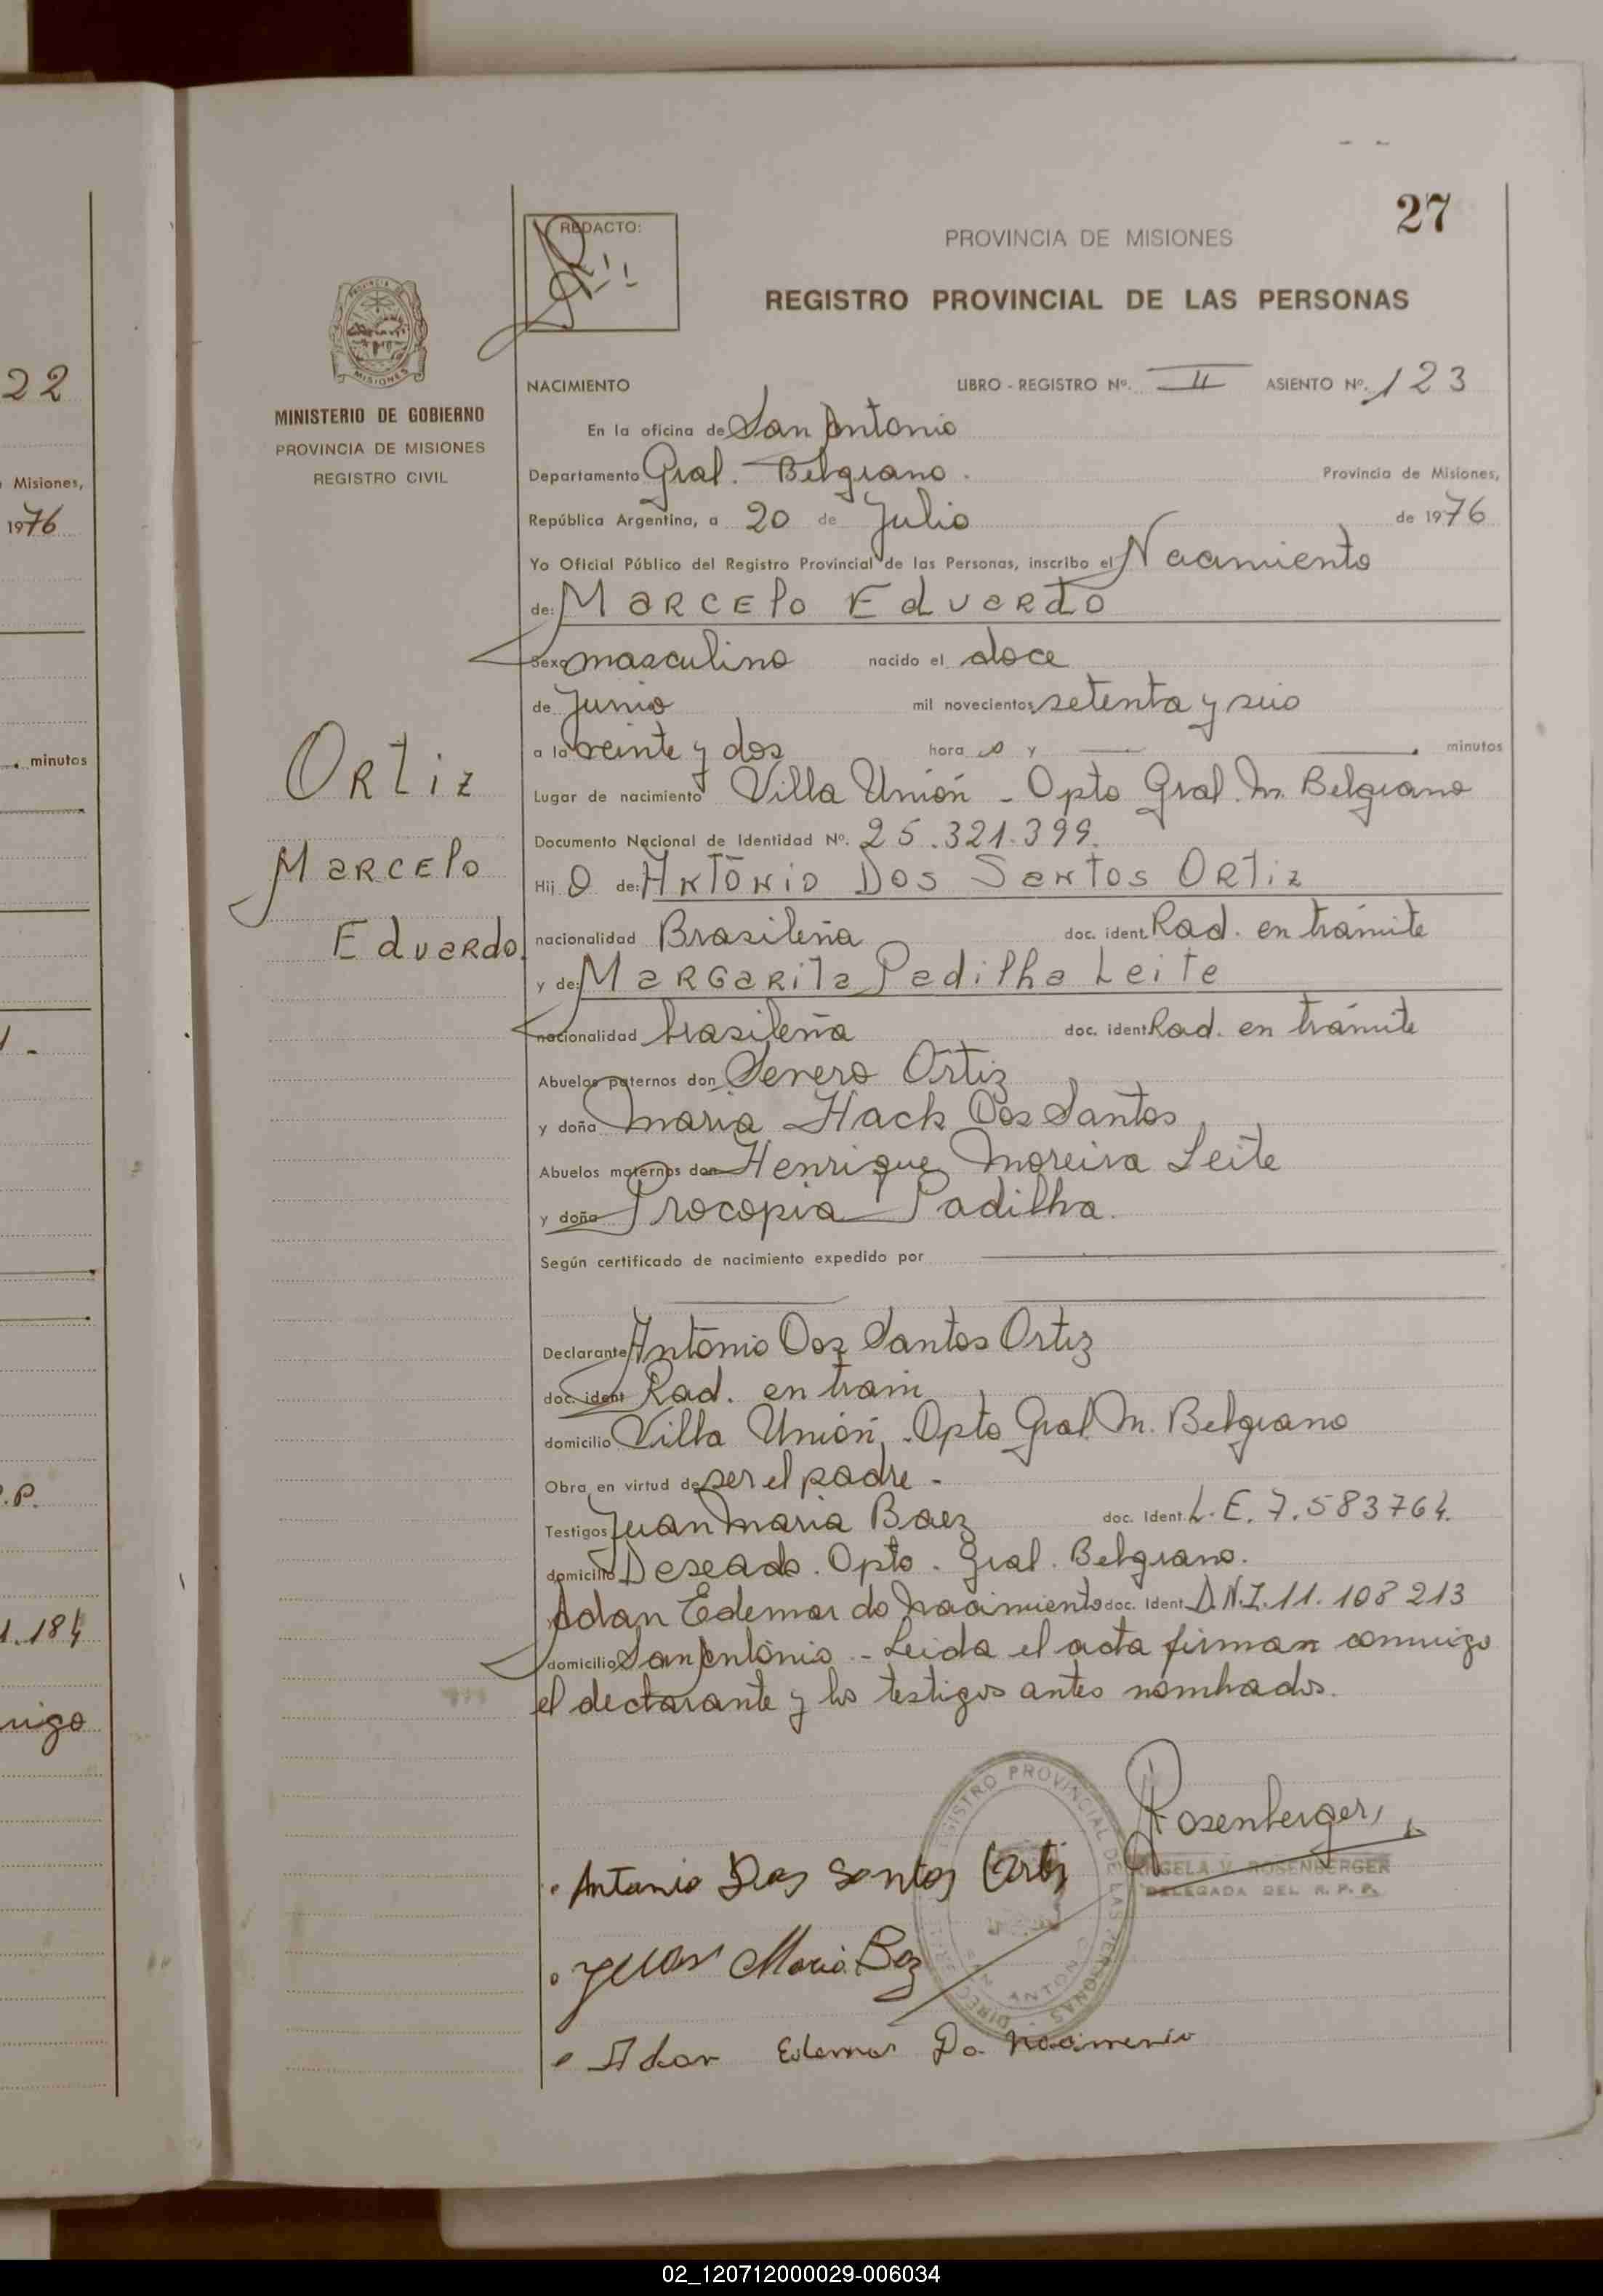 22
Misiones,
1976
minutos
1.184
27
REDACTO:
PROVINCIA DE MISIONES
REGISTRO PROVINCIAL DE LAS PERSONAS
MISIONES
MINISTERIO DE GOBIERNO
PROVINCIA DE MISIONES
REGISTRO CIVIL
Ortiz
Marcelo
Eduardo.
NACIMIENTO LIBRO - REGISTRO Nº. II ASIENTO Nº. 123
En la oficina de San Antonio
Departamento Gral. Belgrano. Provincia de Misiones,
República Argentina, a 20 de Julio de 1976
Yo Oficial Público del Registro Provincial de las Personas, inscribo el Nacimiento
de: Marcelo Eduardo
Sexo masculino nacido el doce
de Junio mil novecientos setenta y seis
a la veinte y dos hora s y — —. minutos
Lugar de nacimiento Villa Unión - Dpto Gral. M. Belgrano
Documento Nacional de Identidad Nº. 25.321.399.
Hij o de: Antonio Dos Santos Ortiz
nacionalidad Brasileña doc. ident. Rad. en trámite
y de: Margarita Padilha Leite
nacionalidad brasileña doc. ident. Rad. en trámite
Abuelos paternos don Severo Ortiz
y doña Maria Hack Dos Santos
Abuelos maternos don Henrique Moreira Leite
y doña Procopia Padilha.
Según certificado de nacimiento expedido por
Declarante Antonio Dos Santos Ortiz
doc. ident Rad. en tram
domicilio Villa Unión, Dpto Gral. M. Belgrano
Obra en virtud de ser el padre -
Testigos Juan Maria Baez doc. Ident. L.E. 7.583764.
domicilio Deseado. Dpto. Gral. Belgrano.
Adan Edemar do Nacimiento doc. Ident. D.N.I. 11.108213
domicilio San Antonio - Leida el acta firman conmigo
el declarante y los testigos antes nombrados.
REGISTRO PROVINCIAL DE LAS PERSONAS
SAN ANTONIO
Rosenberger
ANGELA V. ROSENBERGER
DELEGADA DEL R. P. P.
Antonio Dos Santos Ortiz
Juan Maria Baz
Adan Edemar Do Nacimento
02_120712000029-006034